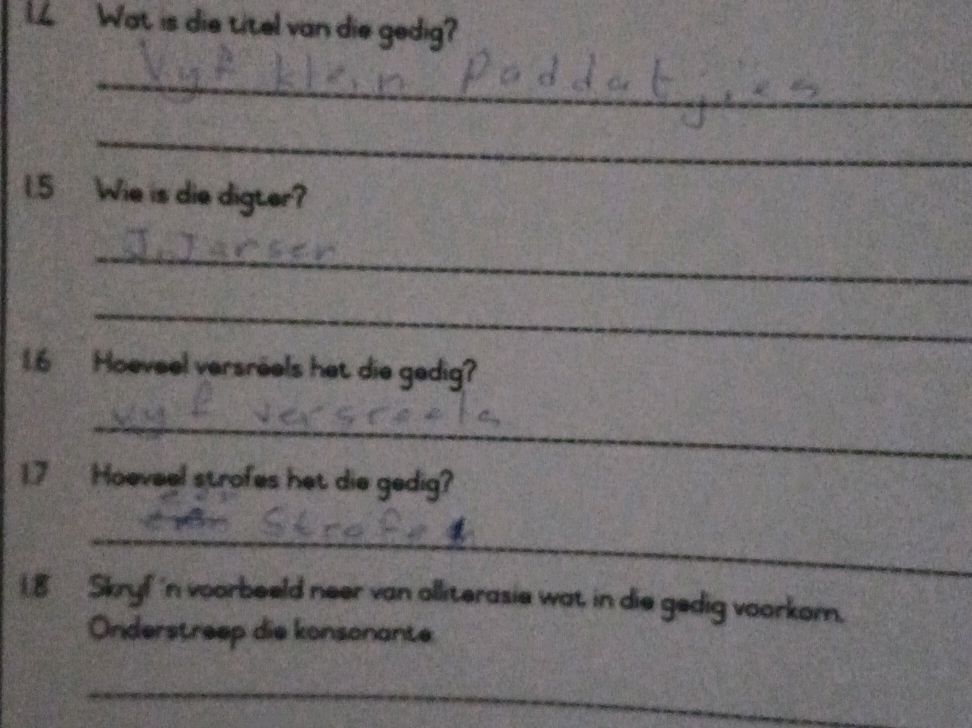 Wat is die titel van die gedig?
Vyf klein Paddatjies
1.5 Wie is die digter?
J. Jarser
1.6 Hoeveel versreëls het die gedig?
vyf versreels
1.7 Hoeveel strofes het die gedig?
een Strofe
1.8 Skryf 'n voorbeeld neer van alliterasie wat in die gedig voorkom.
Onderstreep die konsonante